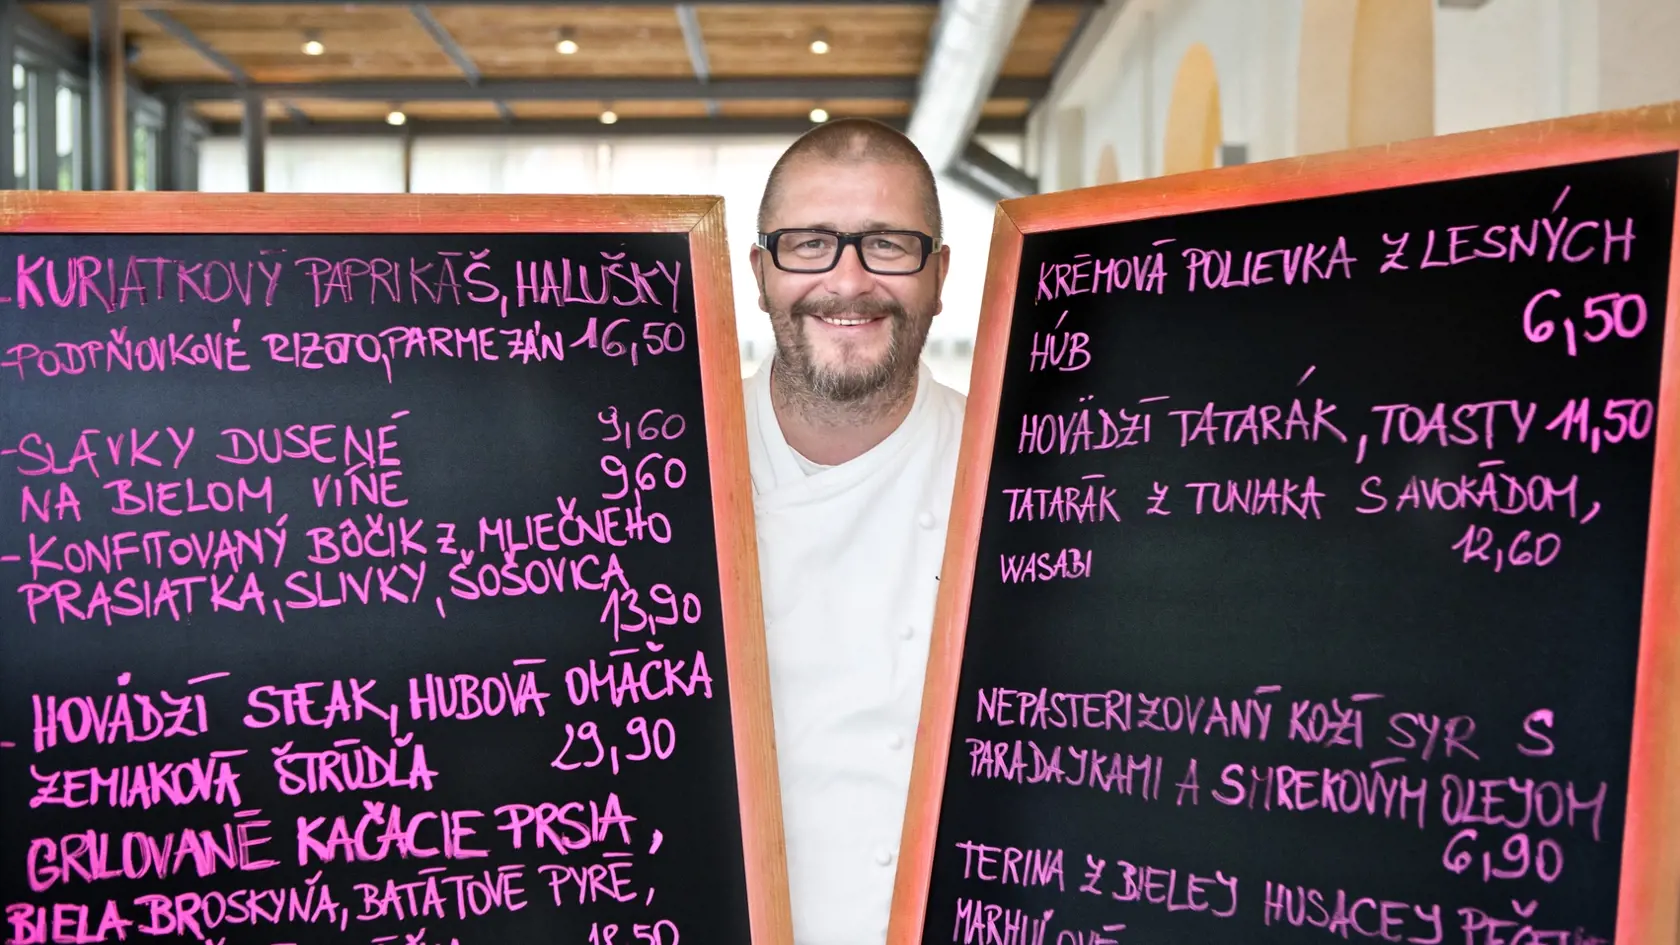 -KURIATKOVÝ PAPRIKÁŠ, HALUŠKY
-PODPŇOVKOVÉ RIZOTO, PARMEZÁN 16,50
-SLÁVKY DUSENÉ 9,60
NA BIELOM VÍNE 9,60
-KONFITOVANÝ BÔČIK Z MLIEČNEHO
PRASIATKA, SLIVKY, ŠOŠOVICA
13,90
- HOVÄDZÍ STEAK, HUBOVÁ OMÁČKA
ZEMIAKOVÁ ŠTRÚDĽA 29,90
GRILOVANÉ KAČACIE PRSIA,
BIELA BROSKYŇA, BATÁTOVÉ PYRÉ,
18,50
KRÉMOVÁ POLIEVKA Z LESNÝCH
HÚB 6,50
HOVÄDZÍ TATARÁK, TOASTY 11,50
TATARÁK Z TUNIAKA S AVOKÁDOM,
WASABI 12,60
NEPASTERIZOVANÝ KOZÍ SYR S
PARADAJKAMI A SMREKOVÝM OLEJOM
6,90
TERINA Z BIELEJ HUSACEJ